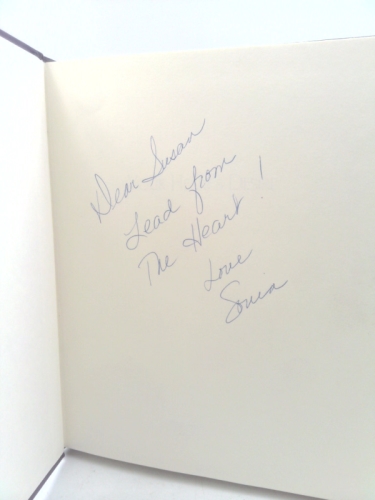 Dear Susan
Lead from
The Heart!
Love
Sonia